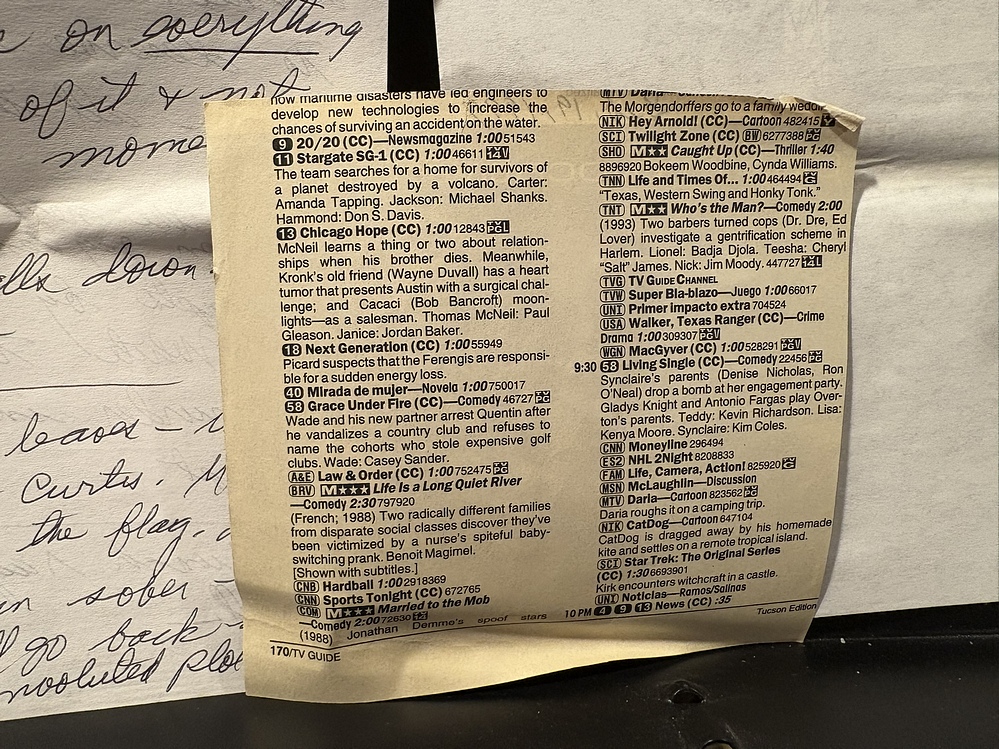 on everything
of it & not
how maritime disasters have led engineers to
develop new technologies to increase the
chances of surviving an accident on the water.
9 20/20 (CC)—Newsmagazine 1:00 51543
11 Stargate SG-1 (CC) 1:00 46611 14V
The team searches for a home for survivors of
a planet destroyed by a volcano. Carter:
Amanda Tapping. Jackson: Michael Shanks.
Hammond: Don S. Davis.
13 Chicago Hope (CC) 1:00 12843 PG L
McNeil learns a thing or two about relation-
ships when his brother dies. Meanwhile,
Kronk's old friend (Wayne Duvall) has a heart
tumor that presents Austin with a surgical chal-
lenge; and Cacaci (Bob Bancroft) moon-
lights—as a salesman. Thomas McNeil: Paul
Gleason. Janice: Jordan Baker.
18 Next Generation (CC) 1:00 55949
Picard suspects that the Ferengis are responsi-
ble for a sudden energy loss.
40 Mirada de mujer—Novela 1:00 750017
58 Grace Under Fire (CC)—Comedy 46727 PG
Wade and his new partner arrest Quentin after
he vandalizes a country club and refuses to
name the cohorts who stole expensive golf
clubs. Wade: Casey Sander.
A&E Law & Order (CC) 1:00 752475 PG
BRV M★★★ Life Is a Long Quiet River
—Comedy 2:30 797920
(French; 1988) Two radically different families
from disparate social classes discover they've
been victimized by a nurse's spiteful baby-
switching prank. Benoit Magimel.
[Shown with subtitles.]
CNB Hardball 1:00 2918369
CNN Sports Tonight (CC) 672765
COM M★★★ Married to the Mob
—Comedy 2:00 72630 14
(1988) Jonathan Demme's spoof stars
170/TV GUIDE
MTV Daria—
The Morgendorffers go to a family
NIK Hey Arnold! (CC)—Cartoon 482415 Y
SCI Twilight Zone (CC) BW 6277388 PG
SHO M★★ Caught Up (CC)—Thriller 1:40
8896920 Bokeem Woodbine, Cynda Williams.
TNN Life and Times Of... 1:00 464494 G
"Texas, Western Swing and Honky Tonk."
TNT M★★ Who's the Man?—Comedy 2:00
(1993) Two barbers turned cops (Dr. Dre, Ed
Lover) investigate a gentrification scheme in
Harlem. Lionel: Badja Djola. Teesha: Cheryl
"Salt" James. Nick: Jim Moody. 447727 14L
TVG TV GUIDE CHANNEL
TVW Super Bla-blazo—Juego 1:00 66017
UNI Primer impacto extra 704524
USA Walker, Texas Ranger (CC)—Crime
Drama 1:00 309307 PG V
WGN MacGyver (CC) 1:00 528291 PG V
9:30 58 Living Single (CC)—Comedy 22456 PG
Synclaire's parents (Denise Nicholas, Ron
O'Neal) drop a bomb at her engagement party.
Gladys Knight and Antonio Fargas play Over-
ton's parents. Teddy: Kevin Richardson. Lisa:
Kenya Moore. Synclaire: Kim Coles.
CNN Moneyline 296494
ES2 NHL 2Night 8208833
FAM Life, Camera, Action! 825920 G
MSN McLaughlin—Discussion
MTV Daria—Cartoon 823562 PG
Daria roughs it on a camping trip.
NIK CatDog—Cartoon 647104
CatDog is dragged away by his homemade
kite and settles on a remote tropical island.
SCI Star Trek: The Original Series
(CC) 1:30 6693901
Kirk encounters witchcraft in a castle.
UNI Noticias—Ramos/Salinas
10 PM 4 9 13 News (CC) :35
Tucson Edition
down
Curtis.
the flag.
sober
go back